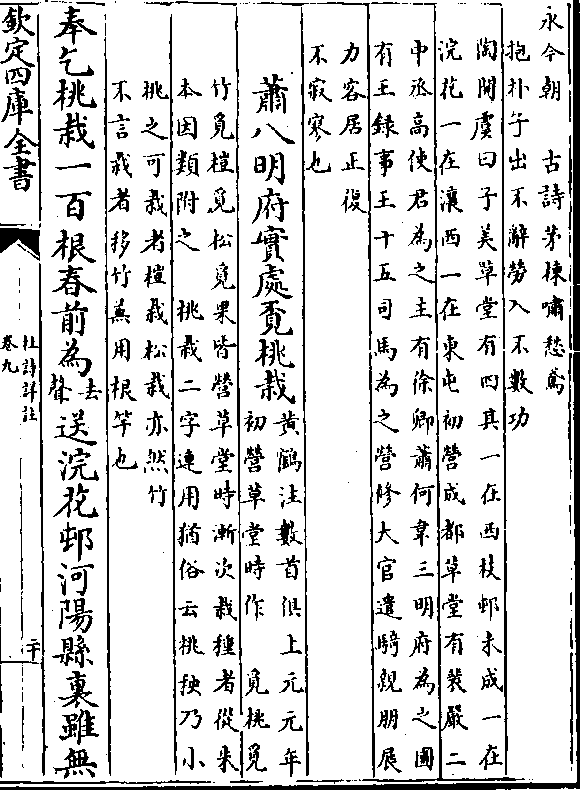 永今朝　古詩茅棟嘯愁鳶
抱朴子出不辭勞入不數功
陶開虞曰子美草堂有四其一在西枝邨未成一在
浣花一在瀼西一在東屯初營成都草堂有裴嚴二
中丞髙使君為之主有徐卿蕭何韋三明府為之圃
有王録事王十五司馬為之營修大官遣騎親朋展
力客居正復
不寂寒也
蕭八明府實處覔桃栽
黄鶴注數首俱上元元年
初營草堂時作　覓桃覓
竹覓榿覓松覓果皆營草堂時漸次栽種者從朱
本因類附之　桃栽二字連用猶俗云桃秧乃小
桃之可栽者榿栽松栽亦然竹
不言栽者移竹兼用根竿也
奉乞桃栽一百根春前為去聲送浣花邨河陽縣裏雖無
欽定四庫全書
杜詩詳註
卷九
二十